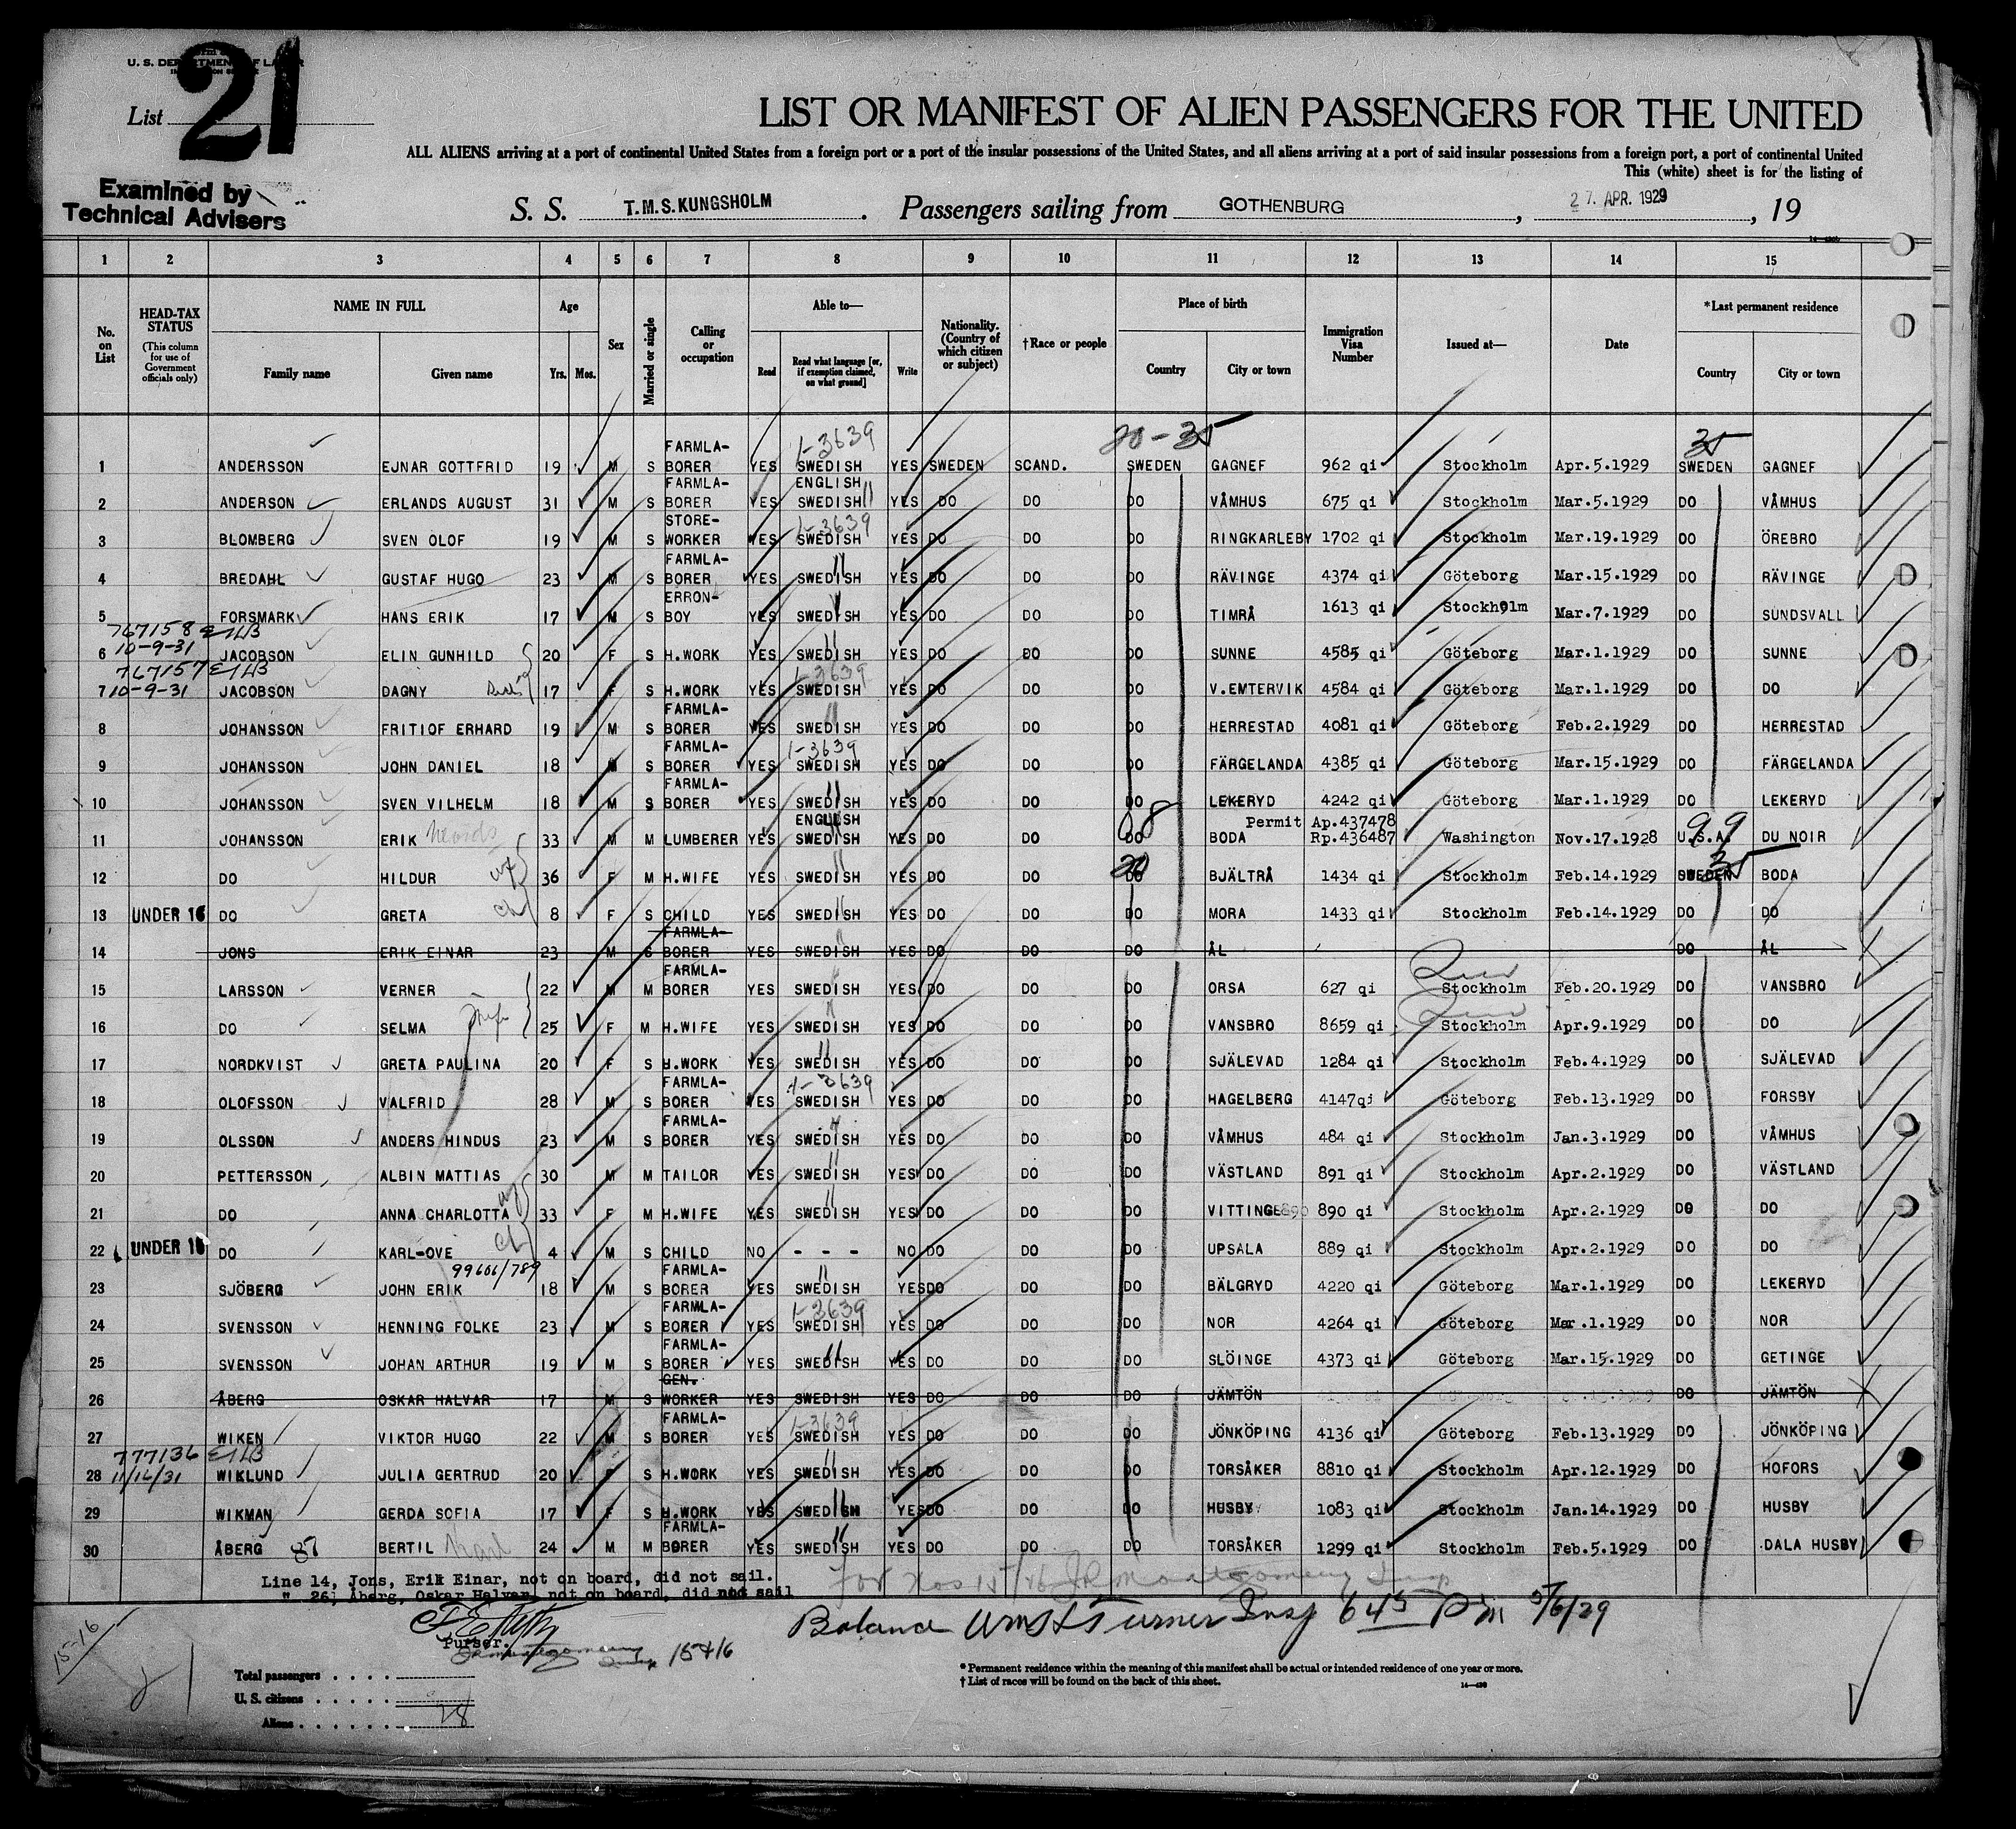 U. S. DEPARTMENT OF LABOR
List 21
LIST OR MANIFEST OF ALIEN PASSENGERS FOR THE UNITED
ALL ALIENS arriving at a port of continental United States from a foreign port or a port of the insular possessions of the United States, and all aliens arriving at a port of said insular possessions from a foreign port, a port of continental United
This (white) sheet is for the listing of
Examined by
Technical Advisers
S. S. T.M.S.KUNGSHOLM. Passengers sailing from GOTHENBURG, 27. APR. 1929, 19
1 2 3 4 5 6 7 8 9 10 11 12 13 14 15
No. on List
HEAD-TAX STATUS (This column for use of Government officials only)
NAME IN FULL Family name Given name
Age Yrs. Mos.
Sex
Married or single
Calling or occupation
Able to— Read Read what language [or, if exemption claimed, on what ground] Write
Nationality. (Country of which citizen or subject)
†Race or people
Place of birth Country City or town
Immigration Visa Number
Issued at—
Date
*Last permanent residence Country City or town
1-3639 20-35 35
1 ANDERSSON EJNAR GOTTFRID 19 M S FARMLA-BORER YES SWEDISH YES SWEDEN SCAND. SWEDEN GAGNEF 962 qi Stockholm Apr.5.1929 SWEDEN GAGNEF
2 ANDERSON ERLANDS AUGUST 31 M S FARMLA-BORER YES ENGLISH SWEDISH YES DO DO DO VÅMHUS 675 qi Stockholm Mar.5.1929 DO VÅMHUS
3 BLOMBERG SVEN OLOF 19 M S STORE-WORKER YES 1-3639 SWEDISH YES DO DO DO RINGKARLEBY 1702 qi Stockholm Mar.19.1929 DO ÖREBRO
4 BREDAHL GUSTAF HUGO 23 M S FARMLA-BORER YES SWEDISH YES DO DO DO RÄVINGE 4374 qi Göteborg Mar.15.1929 DO RÄVINGE
5 FORSMARK HANS ERIK 17 M S ERRON-BOY YES SWEDISH YES DO DO DO TIMRÅ 1613 qi Stockholm Mar.7.1929 DO SUNDSVALL
767158
6 10-9-31 JACOBSON ELIN GUNHILD 20 F S H.WORK YES SWEDISH YES DO DO DO SUNNE 4585 qi Göteborg Mar.1.1929 DO SUNNE
767157 1-3639
7 10-9-31 JACOBSON DAGNY 17 F S H.WORK YES SWEDISH YES DO DO DO V.EMTERVIK 4584 qi Göteborg Mar.1.1929 DO DO
8 JOHANSSON FRITIOF ERHARD 19 M S FARMLA-BORER YES SWEDISH YES DO DO DO HERRESTAD 4081 qi Göteborg Feb.2.1929 DO HERRESTAD
9 JOHANSSON JOHN DANIEL 18 M S FARMLA-BORER YES 1-3639 SWEDISH YES DO DO DO FÄRGELANDA 4385 qi Göteborg Mar.15.1929 DO FÄRGELANDA
10 JOHANSSON SVEN VILHELM 18 M S FARMLA-BORER YES SWEDISH YES DO DO DO LEKERYD 4242 qi Göteborg Mar.1.1929 DO LEKERYD
11 JOHANSSON ERIK 33 M M LUMBERER YES ENGLISH SWEDISH YES DO DO DO BODA Permit Ap.437478 Rp.436487 Washington Nov.17.1928 U.S.A. 99 DU NOIR
12 DO HILDUR 36 F M H.WIFE YES SWEDISH YES DO DO DO 20 BJÄLTRÅ 1434 qi Stockholm Feb.14.1929 SWEDEN 35 BODA
13 UNDER 16 DO GRETA 8 F S CHILD YES SWEDISH YES DO DO DO MORA 1433 qi Stockholm Feb.14.1929 DO DO
14 JONS ERIK EINAR 23 M S FARMLA-BORER YES SWEDISH YES DO DO DO ÅL DO ÅL
15 LARSSON VERNER 22 M M FARMLA-BORER YES SWEDISH YES DO DO DO ORSA 627 qi Stockholm Feb.20.1929 DO VANSBRO
16 DO SELMA Wife 25 F M H.WIFE YES SWEDISH YES DO DO DO VANSBRO 8659 qi Stockholm Apr.9.1929 DO DO
17 NORDKVIST GRETA PAULINA 20 F S H.WORK YES SWEDISH YES DO DO DO SJÄLEVAD 1284 qi Stockholm Feb.4.1929 DO SJÄLEVAD
18 OLOFSSON VALFRID 28 M S FARMLA-BORER YES 1-3639 SWEDISH YES DO DO DO HAGELBERG 4147qi Göteborg Feb.13.1929 DO FORSBY
19 OLSSON ANDERS HINDUS 23 M S FARMLA-BORER YES SWEDISH YES DO DO DO VÅMHUS 484 qi Stockholm Jan.3.1929 DO VÅMHUS
20 PETTERSSON ALBIN MATTIAS 30 M M TAILOR YES SWEDISH YES DO DO DO VÄSTLAND 891 qi Stockholm Apr.2.1929 DO VÄSTLAND
21 DO ANNA CHARLOTTA 33 F M H.WIFE YES SWEDISH YES DO DO DO VITTINGE 890 qi Stockholm Apr.2.1929 DO DO
22 UNDER 16 DO KARL-OVE 4 M S CHILD NO - - - NO DO DO DO UPSALA 889 qi Stockholm Apr.2.1929 DO DO
99606/789
23 SJÖBERG JOHN ERIK 18 M S FARMLA-BORER YES SWEDISH YES DO DO DO BÄLGRYD 4220 qi Göteborg Mar.1.1929 DO LEKERYD
24 SVENSSON HENNING FOLKE 23 M S FARMLA-BORER YES 1-3639 SWEDISH YES DO DO DO NOR 4264 qi Göteborg Mar.1.1929 DO NOR
25 SVENSSON JOHAN ARTHUR 19 M S FARMLA-BORER YES SWEDISH YES DO DO DO SLÖINGE 4373 qi Göteborg Mar.15.1929 DO GETINGE
26 ÅBERG OSKAR HALVAR 17 M S GEN. WORKER YES SWEDISH YES DO DO DO JÄMTÖN DO JÄMTÖN
27 WIKEN VIKTOR HUGO 22 M S FARMLA-BORER YES 1-3639 SWEDISH YES DO DO DO JÖNKÖPING 4136 qi Göteborg Feb.13.1929 DO JÖNKÖPING
777136
28 11/16/31 WIKLUND JULIA GERTRUD 20 F S H.WORK YES SWEDISH YES DO DO DO TORSÅKER 8810 qi Stockholm Apr.12.1929 DO HOFORS
29 WIKMAN GERDA SOFIA 17 F S H.WORK YES SWEDISH YES DO DO DO HUSBY 1083 qi Stockholm Jan.14.1929 DO HUSBY
30 ÅBERG BERTIL Karl 24 M M FARMLA-BORER YES SWEDISH YES DO DO DO TORSÅKER 1299 qi Stockholm Feb.5.1929 DO DALA HUSBY
Line 14, Jons, Erik Einar, not on board, did not sail.
" 26, Åberg, Oskar Halvar, not on board, did not sail
For Nos 15/16 J R Montgomery Insp
Balance Wm S Turner Insp 645 PM 5/6/29
Purser.
15+16
15-16
Total passengers . . . .
U. S. citizens . . . . .
Aliens . . . . . . . 28
* Permanent residence within the meaning of this manifest shall be actual or intended residence of one year or more.
† List of races will be found on the back of this sheet.